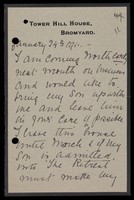 TOWER HILL HOUSE,
BROMYARD.
January 24th 1911.
I am coming North early
next month on business
and would like to
bring my son up with
me and leave him
in your care if possible
I leave this house
until March & if my
son is admitted
into The Retreat
must make my